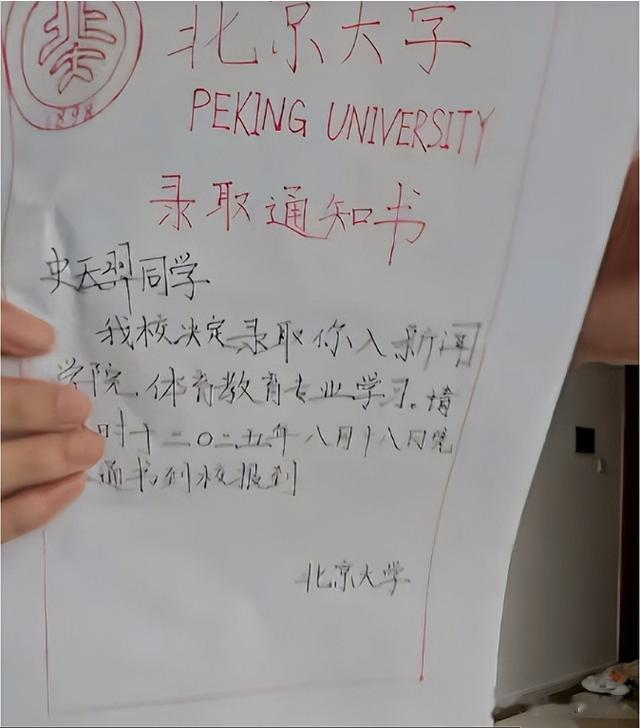 1898
北京大学
PEKING UNIVERSITY
录取通知书
史天羿同学
我校决定录取你入新闻
学院.体育教育专业学习。请
时于二〇二五年八月十八日凭
通书到校报到
北京大学